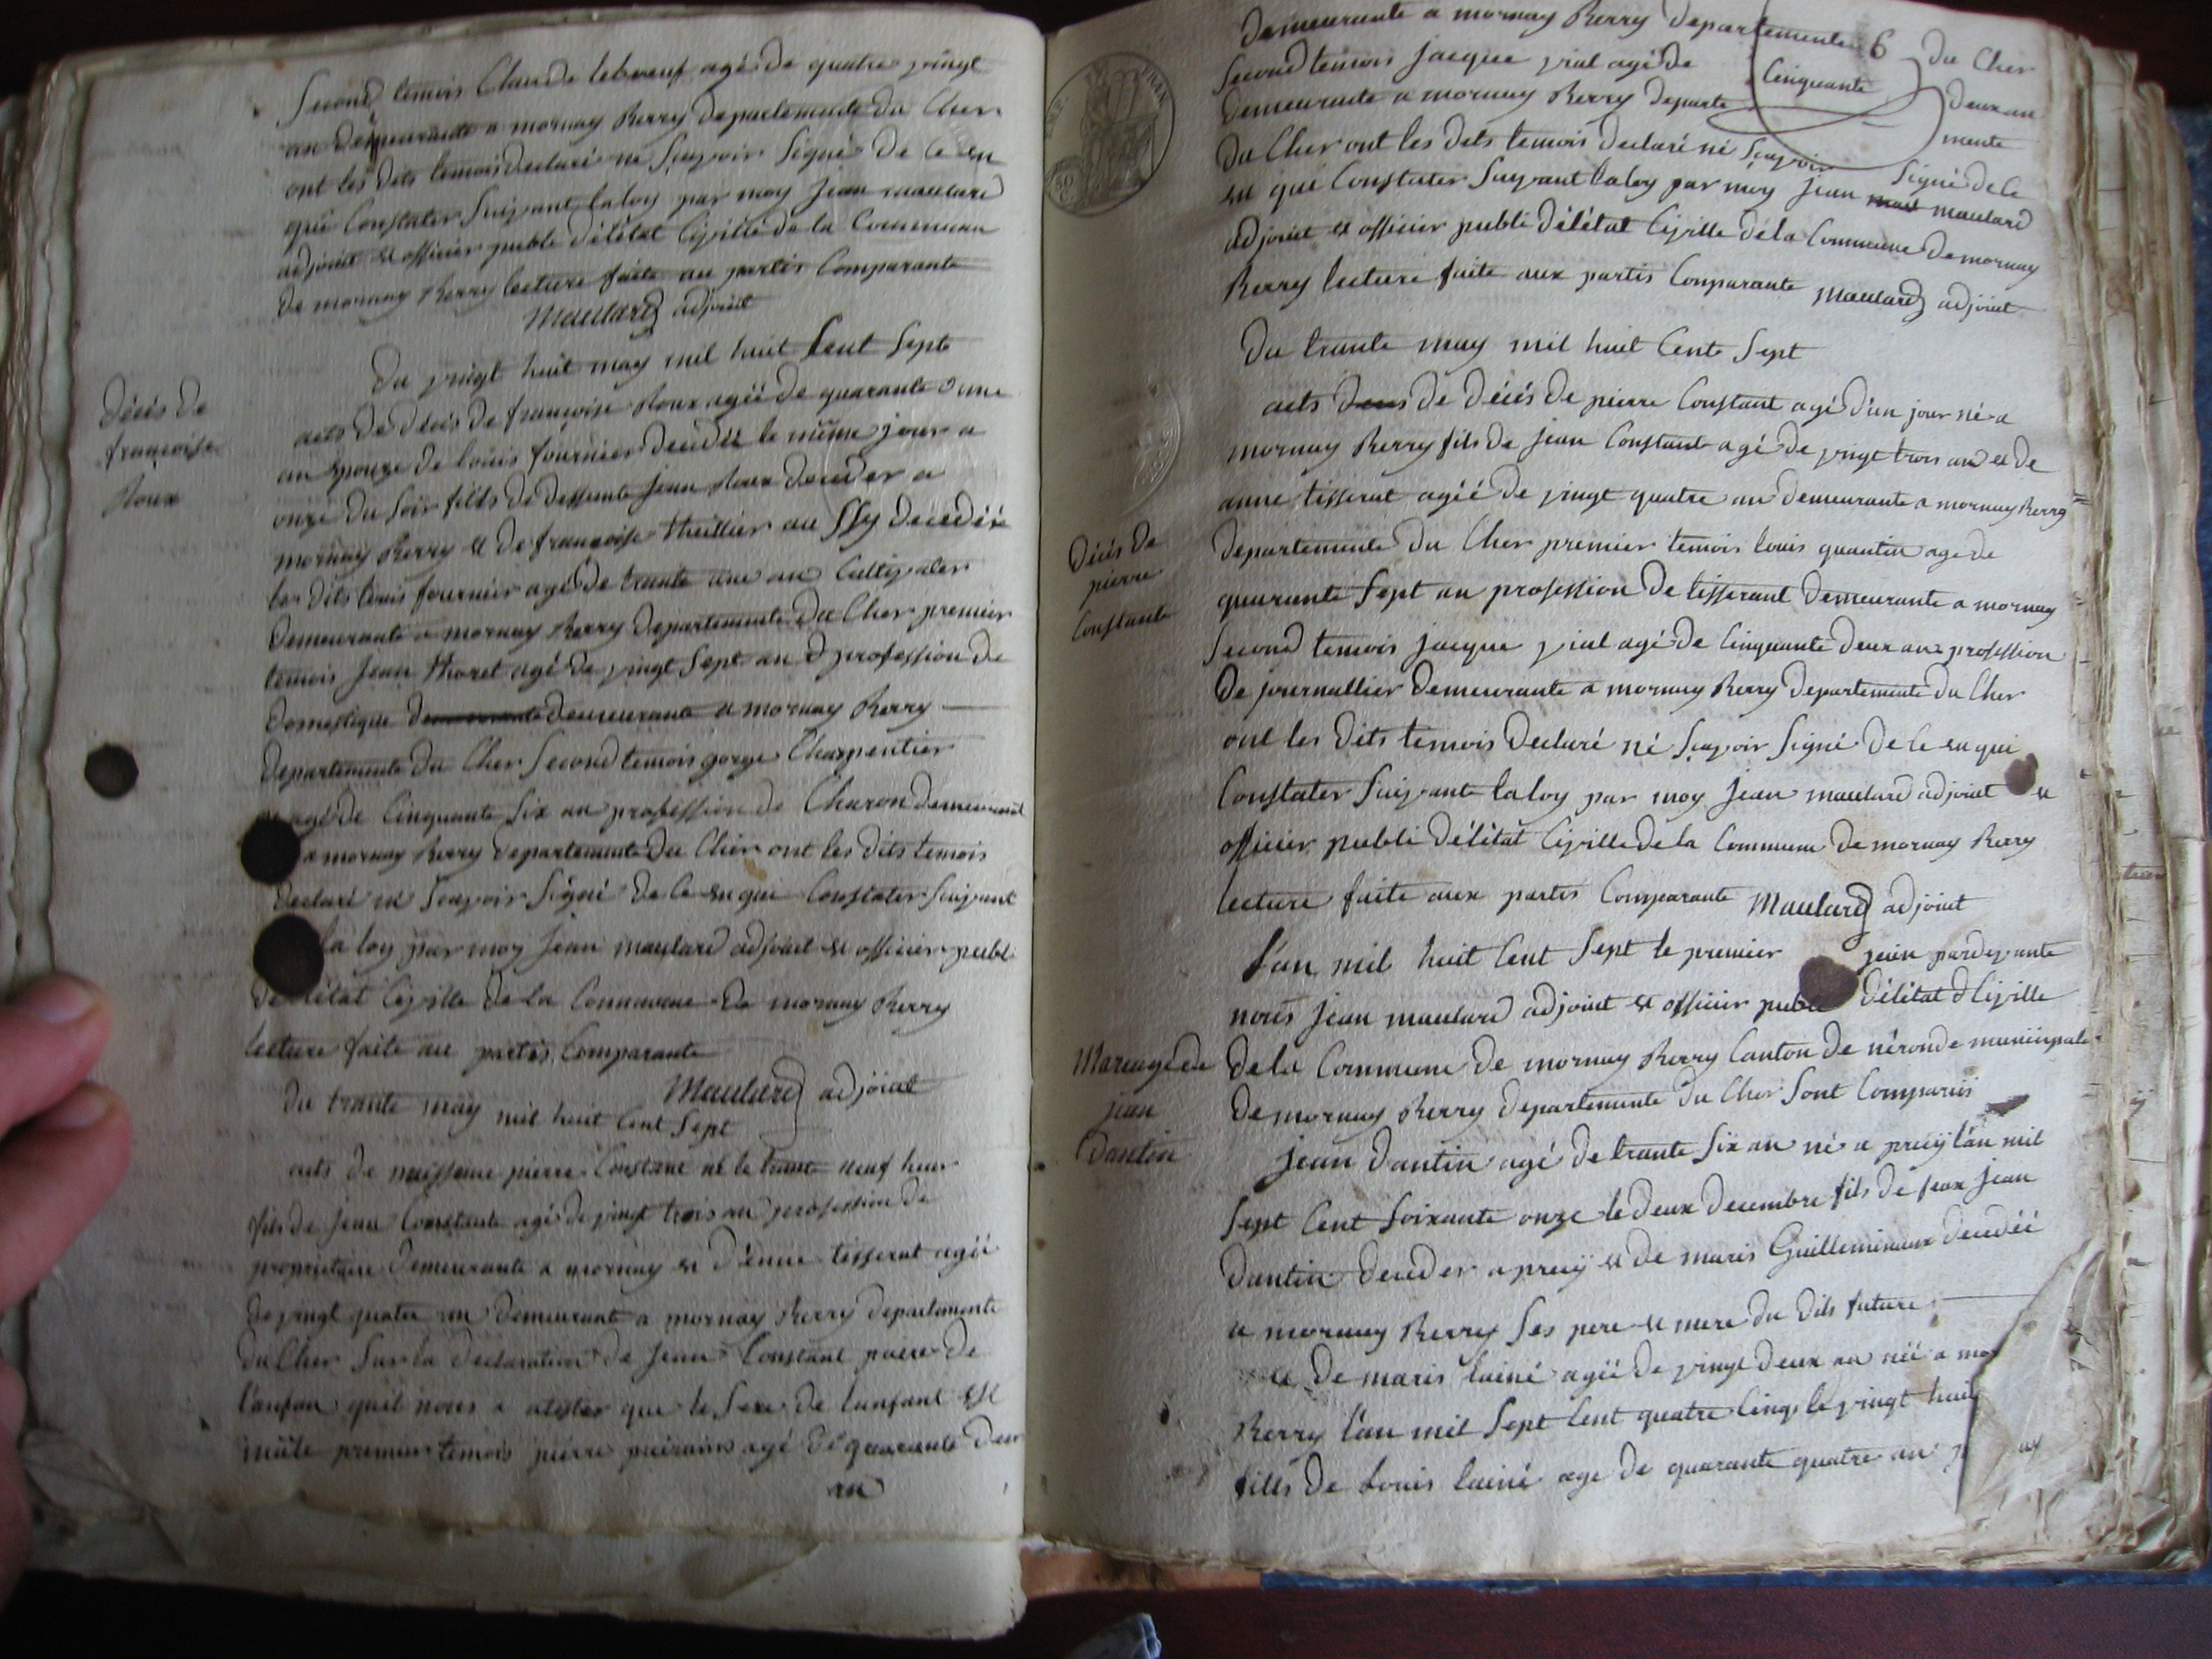 Second temoin Claude leboeuf agé de quatre vingt
an demeurante a mornay Berry departemente du Cher
ont les dits temois declaré ne sçavoir signé de ce en
que Constater suivant la loy par moy jean maulard
adjoint et officier publi délétat Civille de la Commune
de mornay Berry lecture faite au partis Comparante
Maulard adjoint
Décés de
françoise
Roux
Du vingt huit may mil huit Cent Sept
acts de décés de françoise Roux agéé de quarante dune
an épouze de louis fournier decedéé le même jour a
onze du soir fills de deffunte jean Roux deceder a
mornay Berry et de françoise thuillier au ssy decedéé
les dits louis fournier agé de trante une an Cultivater
Demeurante a mornay Berry Departemente Du Cher premier
temois jean thoret agé de vingt Sept an d profession de
domestique demeurante a mornay Berry
departemente du Cher Second temois gorge Charpentier
agé de Cinquante six an profession de Charon demeurant
a mornay Berry departemente du Cher ont les dits temois
declaré né sçavoir signé de ce en que Constater suivant
la loy par moy jean maulard adjoint et officier publi
délétat Civille de la Commune de mornay Berry
lecture faite au partis Comparante
Maulard adjoint
du trante may mil huit Cent Sept
acts de naissance pierre Constant né le trante neuf heur
fils de jean Constante agé de vingt trois an profession de
propriétaire demeurante a mornay et d'enne tisserat agéé
de vingt quatre an demeurant a mornay Berry departemente
du Cher Sur la declaration de jean Constant paire de
l'anfan quil nous a atester que le sexe de lanfant est
mâle premier temois pierre agé de quarante deux
an
6
demeurante a mornay Berry departemente du Cher
second temois jacque vial agé de Cinquante deux an
demeurante a mornay Berry departe mente
du Cher ont les dets temois declaré né sçavoir signé de ce
en que Constater suivant la loy par moy jean maulard
adjoint et officier publi délétat Civille déla Commune de mornay
Berry lecture faite aux partis Conparante Maulard adjoint
Du trante may mil huit Cente Sept
Décés de
pierre
Constante
acts de décés de pierre Constant agé d'un jour né a
mornay Berry fils de jean Constant agé de vingt trois an et de
anne tisserat agéé de vingt quatre an demeurante a mornay Berry
departemente du Cher premier temois louis quantin age de
quarante Sept an profession de tisserant demeurante a mornay
second temois jacque vial agé de Cinquante deux an profession
De journallier demeurante a mornay Berry departemente du Cher
ont les dits temois declaré né sçavoir signé de ce en qui
Constater suivante la loy par moy jean maulard adjoint et
officier publi délétat Civille de la Commune de mornay Berry
lecture faite aux partis Comparante Maulard adjoint
L'an mil huit Cent Sept le premier juin pardevante
nous jean maulard adjoint et officier publi délétat d Civille
Mareage de
jean
Dantin
de la Commune de mornay Berry Canton de néronde municipale
de mornay Berry departemente du Cher sont Comparus
jean Dantin agé de trante six an né a precÿ l'an mil
Sept Cent Soixante onze le deux decembre fils de feux jean
Dantin deceder a precÿ et de maris Guilleminaux decedéé
a mornay Berry ses pere et mere du dits future
et de maris lainé agéé de vingt deux an néé a mor
Berry l'an mil Sept Cent quatre Cinq le vingt huit
fills de Louis lainé age de quarante quatre an